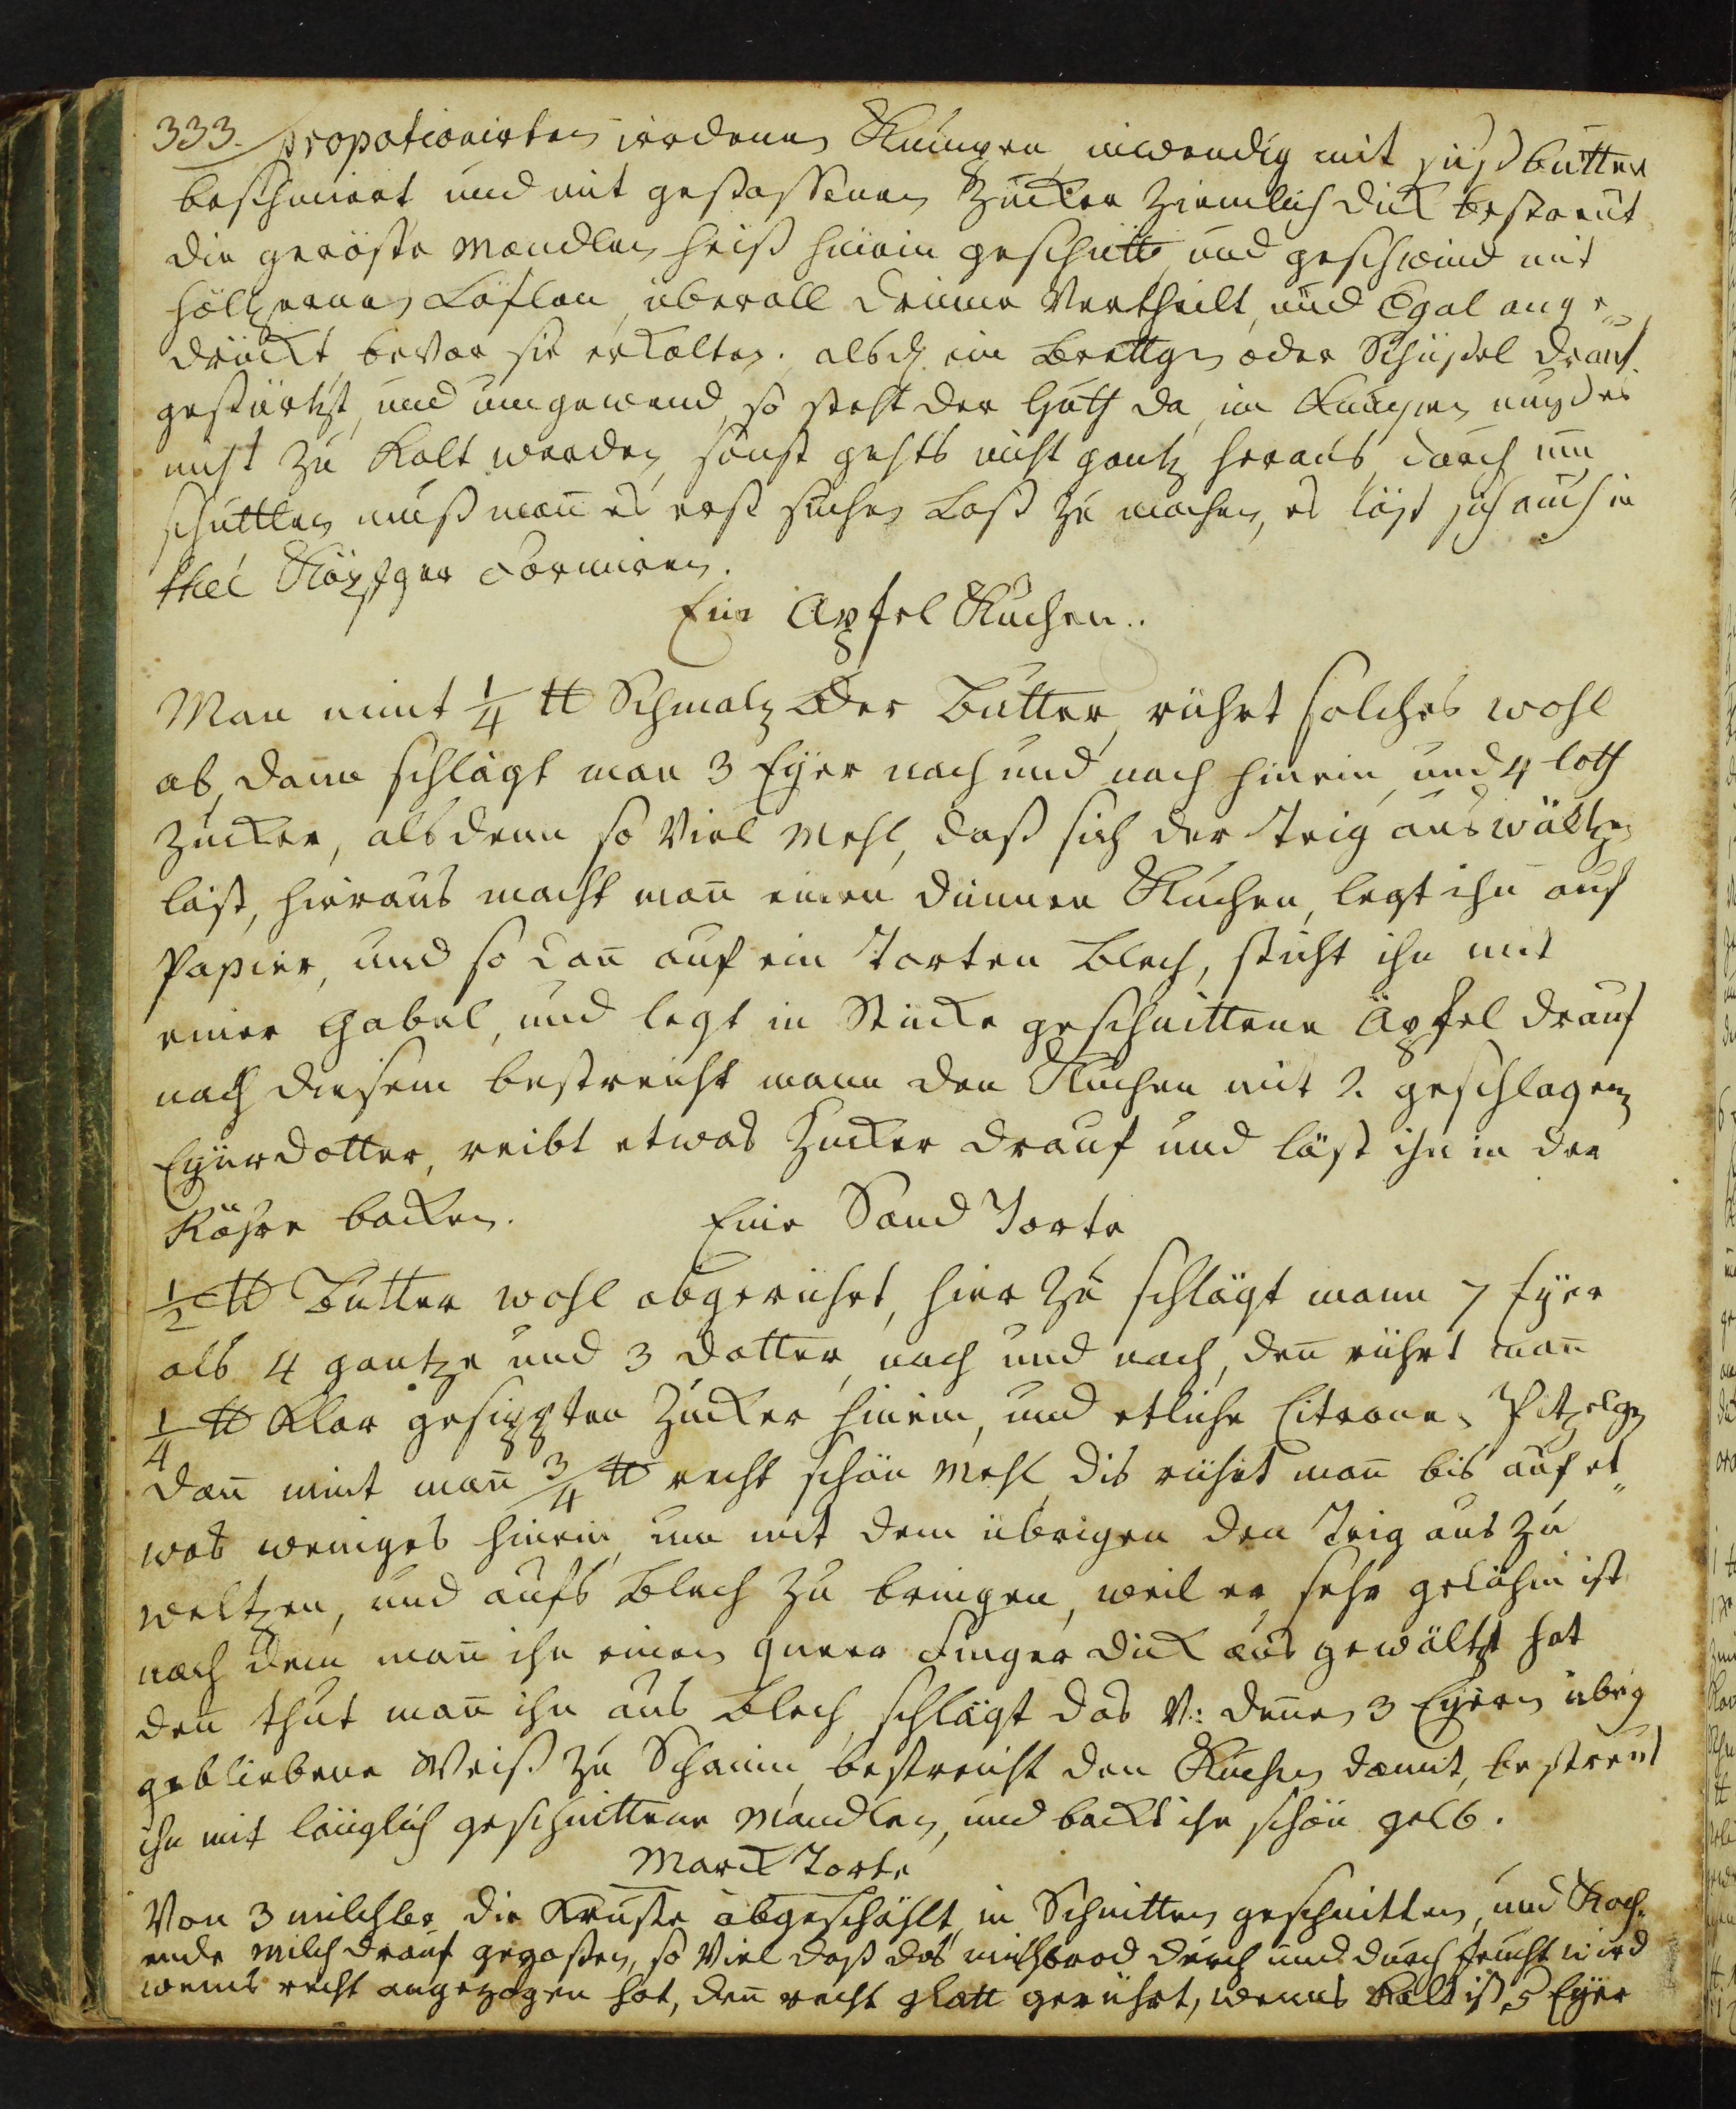 333. propotionirten irdenen Kumpen inwendig mit süßbutter
beschmiert und mit gestossenen Zucker ziemlich dick bestreut
die geröste Mandlen heiß hinein geschütt, und geschwind mit
höltzernen Löflen, überall drinne Vertheilt, und Egal ange„
drückt, bevor sie erkalten. alsd ein Brettgen oder Schüßel drauf
gestürtzt, und umgewend, so steht der Huth da, im Kumpen muß es
nicht zu Kalt werden, sonst gehts nicht gantz heraus, durch um
schüttlen muß man es erst suchen Loß zu machen, es läst sich auch in
theé Köpfger Formiren.
Ein Apfel Kuchen..
Man nimt 1/4 ℔ Schmalz oder Butter, rührt solches wohl
ab, dann schlägt man 3 Eyer nach und nach hinein, und 4 loth
Zucker, alsdenn so Viel Mehl, daß sich der Teig auswältzen
läst, hieraus macht man̄ einen dünnen Kuchen, legt ihn auf
Papier, und so dan̄ auf ein Torten Blech, sticht ihn mit
einer Gabel, und legt in Stücke geschnittene Äpfel drauf
nach diesem bestreicht mann den Kuchen mit 2. geschlagen
Eyerdotter, reibt etwas Zucker drauf und läst ihn in der
Röhre backen. Eine Sand Torte
1/2 ℔ Butter wohl abgerührt, hier zu schlägt mann 7 Eyer
als 4 gantze und 3 dotter, nach und nach, den̄ rührt man̄
1/4 ℔ Klar gesippten Zucker hinein, und etliche Citrone,
dan̄ nimt man̄ 3/4 ℔ recht schön Mehl, dis rührt man̄ bis auf et„
was weniges hinein, um mit dem übrigen den Teig aus zu
weltzen, und aufs Blech zu bringen, weil er sehr ist
nach dem man̄ ihn einen queer Finger dick aus gewältzt hat
den̄ thut man̄ ihn aus Blech, schlägt das V: denen 3 Eyern übrig
gebliebene Weiß zu Schaum, bestreicht den Kuchen damit, bestreut
ihn mit länglich geschnittene Mandlen, und backt ihn schön gelb.
Marck Torte
Von 3 milchbr die Kruste abgeschählt, in Schnitten geschnitten, und Koch„
ende Milch drauf gegoßen, so Viel daß das milchbrod durch und durch feucht wird
wenns recht angezogen hat, den̄ recht glatt gerührt, wenns Kalt ist, 5 Eyer